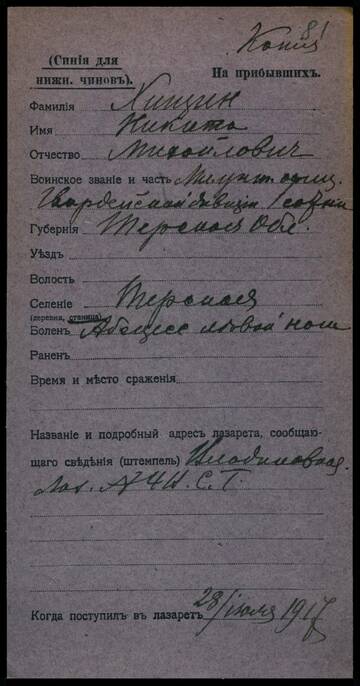 81
Копия
(Синія для
нижн. чиновъ).
На прибывшихъ.
Фамилія Хищин
Имя Никита
Отчество Михайлович
Воинское званіе и часть
Губернія Терская Обл.
Уѣздъ
Волость
Селеніе Терская
(деревня, станица)
Боленъ Абсцесс левой ноги
Раненъ
Время и мѣсто сраженія
Названіе и подробный адресъ лазарета, сообщаю-
щаго свѣдѣнія (штемпель)
Лаз. № 4
Когда поступилъ въ лазаретъ 28/июля 1917